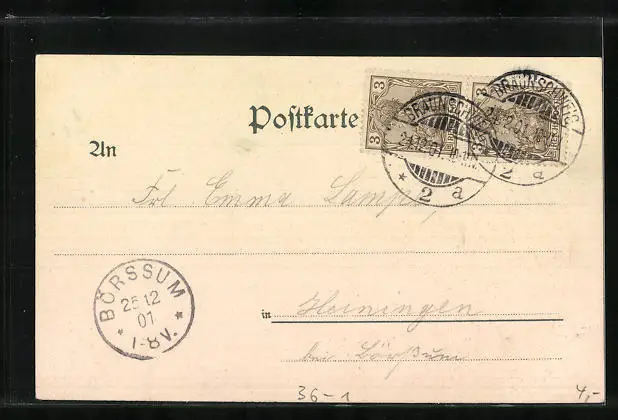 3 3
3
BRAUNSCHWEIG 1
24.12.01.
* 2 a
BRAUNSCHWEIG 1
2 a
Poſtkarte
An
Frl. Emma Lampe,
BÖRSSUM
25 12
01
* 1-8V. *
in Heiningen
bei Börßum
36-1
4,-